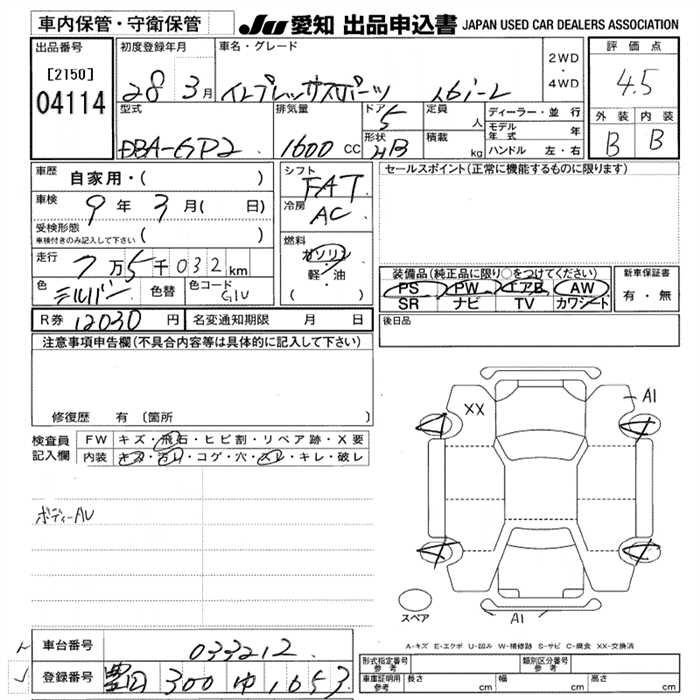 車内保管・守衛保管
JU 愛知 出品申込書 JAPAN USED CAR DEALERS ASSOCIATION
出品番号 初度登録年月 車名・グレード 2WD・4WD 評価点
[2150] 28 3月 インプレッサスポーツ 1.6i-L 4.5
04114
型式 排気量 ドア 5 定員 人 ディーラー・並行 外装 内装
DBA-GP2 1600 CC 形状 HB 積載 kg モデル年式 年 B B
ハンドル 左・右
車歴 自家用・( ) シフト FAT セールスポイント(正常に機能するものに限ります)
車検 9年 3月( 日) 冷房 AC
受検形態
車検付きのみ記入して下さい ( )
走行 7万5千032km 燃料 ガソリン 軽・油 ( )
装備品(純正品に限り○をつけてください) 新車保証書
色 シルバー 色替 色コード G1U
PS PW エアB AW 有・無
SR ナビ TV カワシート
R券 12030円 名変通知期限 月 日 後日品
注意事項申告欄(不具合内容等は具体的に記入して下さい)
XX A1
修復歴 有 〔箇所
検査員 FW キズ・飛石・ヒビ割・リペア跡・X要
記入欄 内装 キズ・汚れ・コゲ・穴・スレ・キレ・破レ
ボディーAU
スペア A1
A-キズ E-エクボ U-凹み W-補修跡 S-サビ C-腐食 XX-交換済
車台番号 033212
登録番号 豊田 300 ゆ 1053
形式指定番号 参考 類別区分番号 参考
車庫証明用 参考 長さ cm 幅 cm 高さ cm